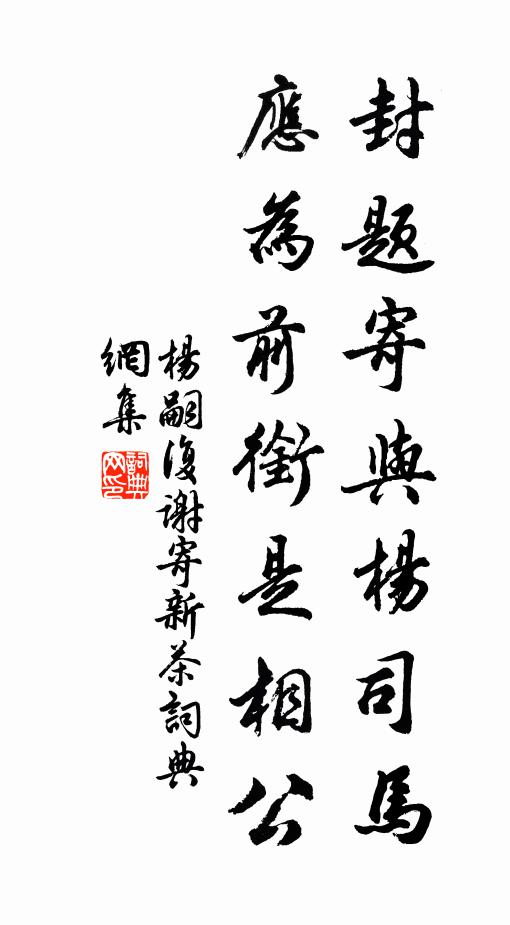 封題寄與楊司馬
應為前銜是相公
楊嗣復謝寄新茶詞典
網集
詞典網印